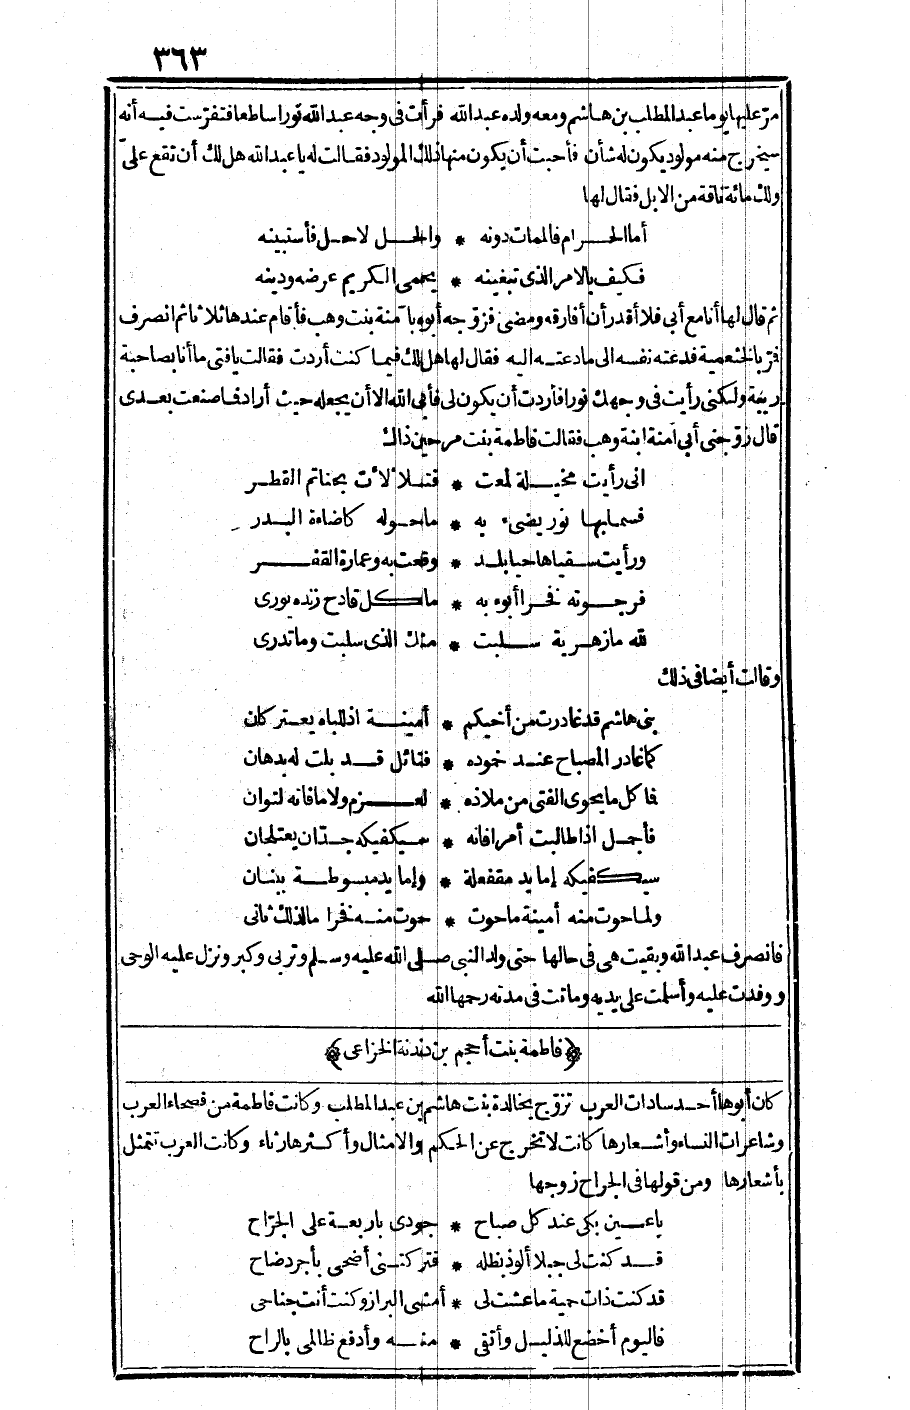 ٣٦٣
مرّ عليها يوما عبد المطلب بن هاشم ومعه ولده عبد الله فرأت في وجه عبد الله نورا ساطعا فتفرّست فيه أنه
سيخرج منه مولود يكون له شأن فأحبت أن يكون منها ذلك المولود فقالت له يا عبد الله هل لك أن تقع علىّ
ولك مائة ناقة من الابل فقال لها
أما الحرام فالممات دونه * والحل لا حل فأستبينه
فكيف بالامر الذي تبغينه * يحمى الكريم عرضه ودينه
ثم قال لها أنا مع أبي فلا أقدر أن أفارقه ومضى فزوّجه أبوه بآمنة بنت وهب فأقام عندها ثلاثا ثم انصرف
فمرّ بالخثعمية فدعته نفسه الى ما دعته اليه فقال لها هل لك فيما كنت أردت فقالت يا فتى ما أنا بصاحبة
ريبة ولكنى رأيت في وجهك نورا فأردت أن يكون لى فأبى الله الا أن يجعله حيث أراد فما صنعت بعدى
قال زوّجنى أبي آمنة ابنة وهب فقالت فاطمة بنت مر حين ذاك
انى رأيت مخيلة لمعت * فتلألأت بحناتم القطر
فسما بها نور يضىء به * ما حوله كاضاءة البدر
ورأيت سقياها حيا بلد * وقعت به وعمارة القفر
فرجوته فخرا أبوء به * ما كل قادح زنده يورى
لله ما زهرية سلبت * منك الذى سلبت وما تدرى
وقالت أيضا في ذلك
بنى هاشم قد غادرت من أخيكم * أمينة اذ للباه يعتركان
كما غادر المصباح عند خموده * فتائل قد بلت له بدهان
فما كل ما يحوى الفتى من ملاذه * لعزم ولا ما فاته لتوان
فأجمل اذا طالبت أمرا فانه * سيكفيكه جدّان يعتلجان
سيكفيكه إما يد مقفعلة * وإما يد مبسوطة ببنان
ولما حوت منه أمينة ما حوت * حوت منه فخرا ما لذلك ثانى
فانصرف عبد الله وبقيت هى في حالها حتى ولد النبى صلى الله عليه وسلم وتربى وكبر ونزل عليه الوحى
ووفدت عليه وأسلمت على يديه وماتت في مدته رحمها الله
﴿فاطمة بنت أحجم بن دندنة الخزاعى﴾
كان أبوها أحد سادات العرب تزوّج بخالدة بنت هاشم بن عبد المطلب وكانت فاطمة من فصحاء العرب
وشاعرات النساء وأشعارها كانت لا تخرج عن الحكم والامثال وأكثرها رثاء وكانت العرب تتمثل
بأشعارها ومن قولها في الجراح زوجها
يا عين بكى عند كل صباح * جودى بأربعة على الجرّاح
قد كنت لى جبلا ألوذ بظله * فتركتنى أضحى بأجرد ضاح
قد كنت ذات حمية ما عشت لى * أمشى البراز وكنت أنت جناحى
فاليوم أخضع للذليل وأتقى * منه وأدفع ظالمى بالراح